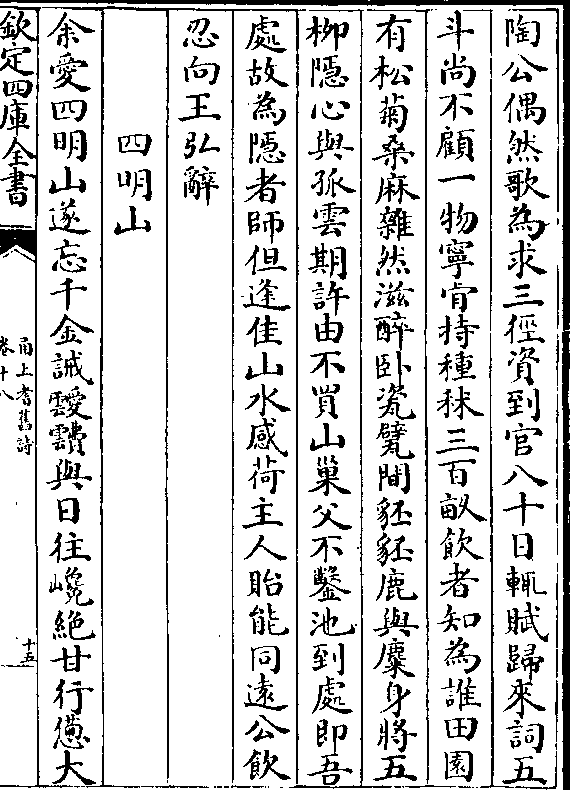 陶公偶然歌為求三徑資到官八十日輒賦歸來詞五
斗尚不顧一物寧肯持種秫三百畝飲者知為誰田園
有松菊桑麻雜然滋醉卧瓷甓間豾豾鹿與麋身將五
柳隱心與孤雲期許由不買山巢父不鑿池到處即吾
處故為隱者師但逢佳山水感荷主人貽能同遠公飲
忍向王弘辭
四明山
余愛四明山遂忘千金誡靉靅與日往巉絶甘行憊大
欽定四庫全書
甬上耆舊詩
卷十八
十五